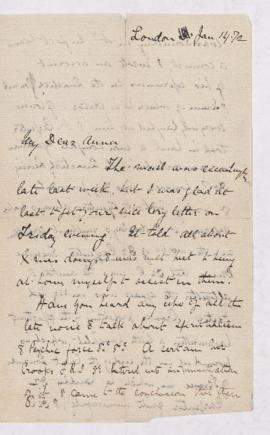 London Jan 14. 72
My Dear Anna
The mail was exceedingly
late last week, but I was glad at
last to get your nice long letter on
Friday evening. It told all about
Xmas doings & was just not being
at home myself to assist in them.
Have you heard any echo of all the
late noise & talk about Spiritualism
& Psychic force &c. &c. A certain Mr
Crookes F.R.S. &c.
for it & came to the conclusion that